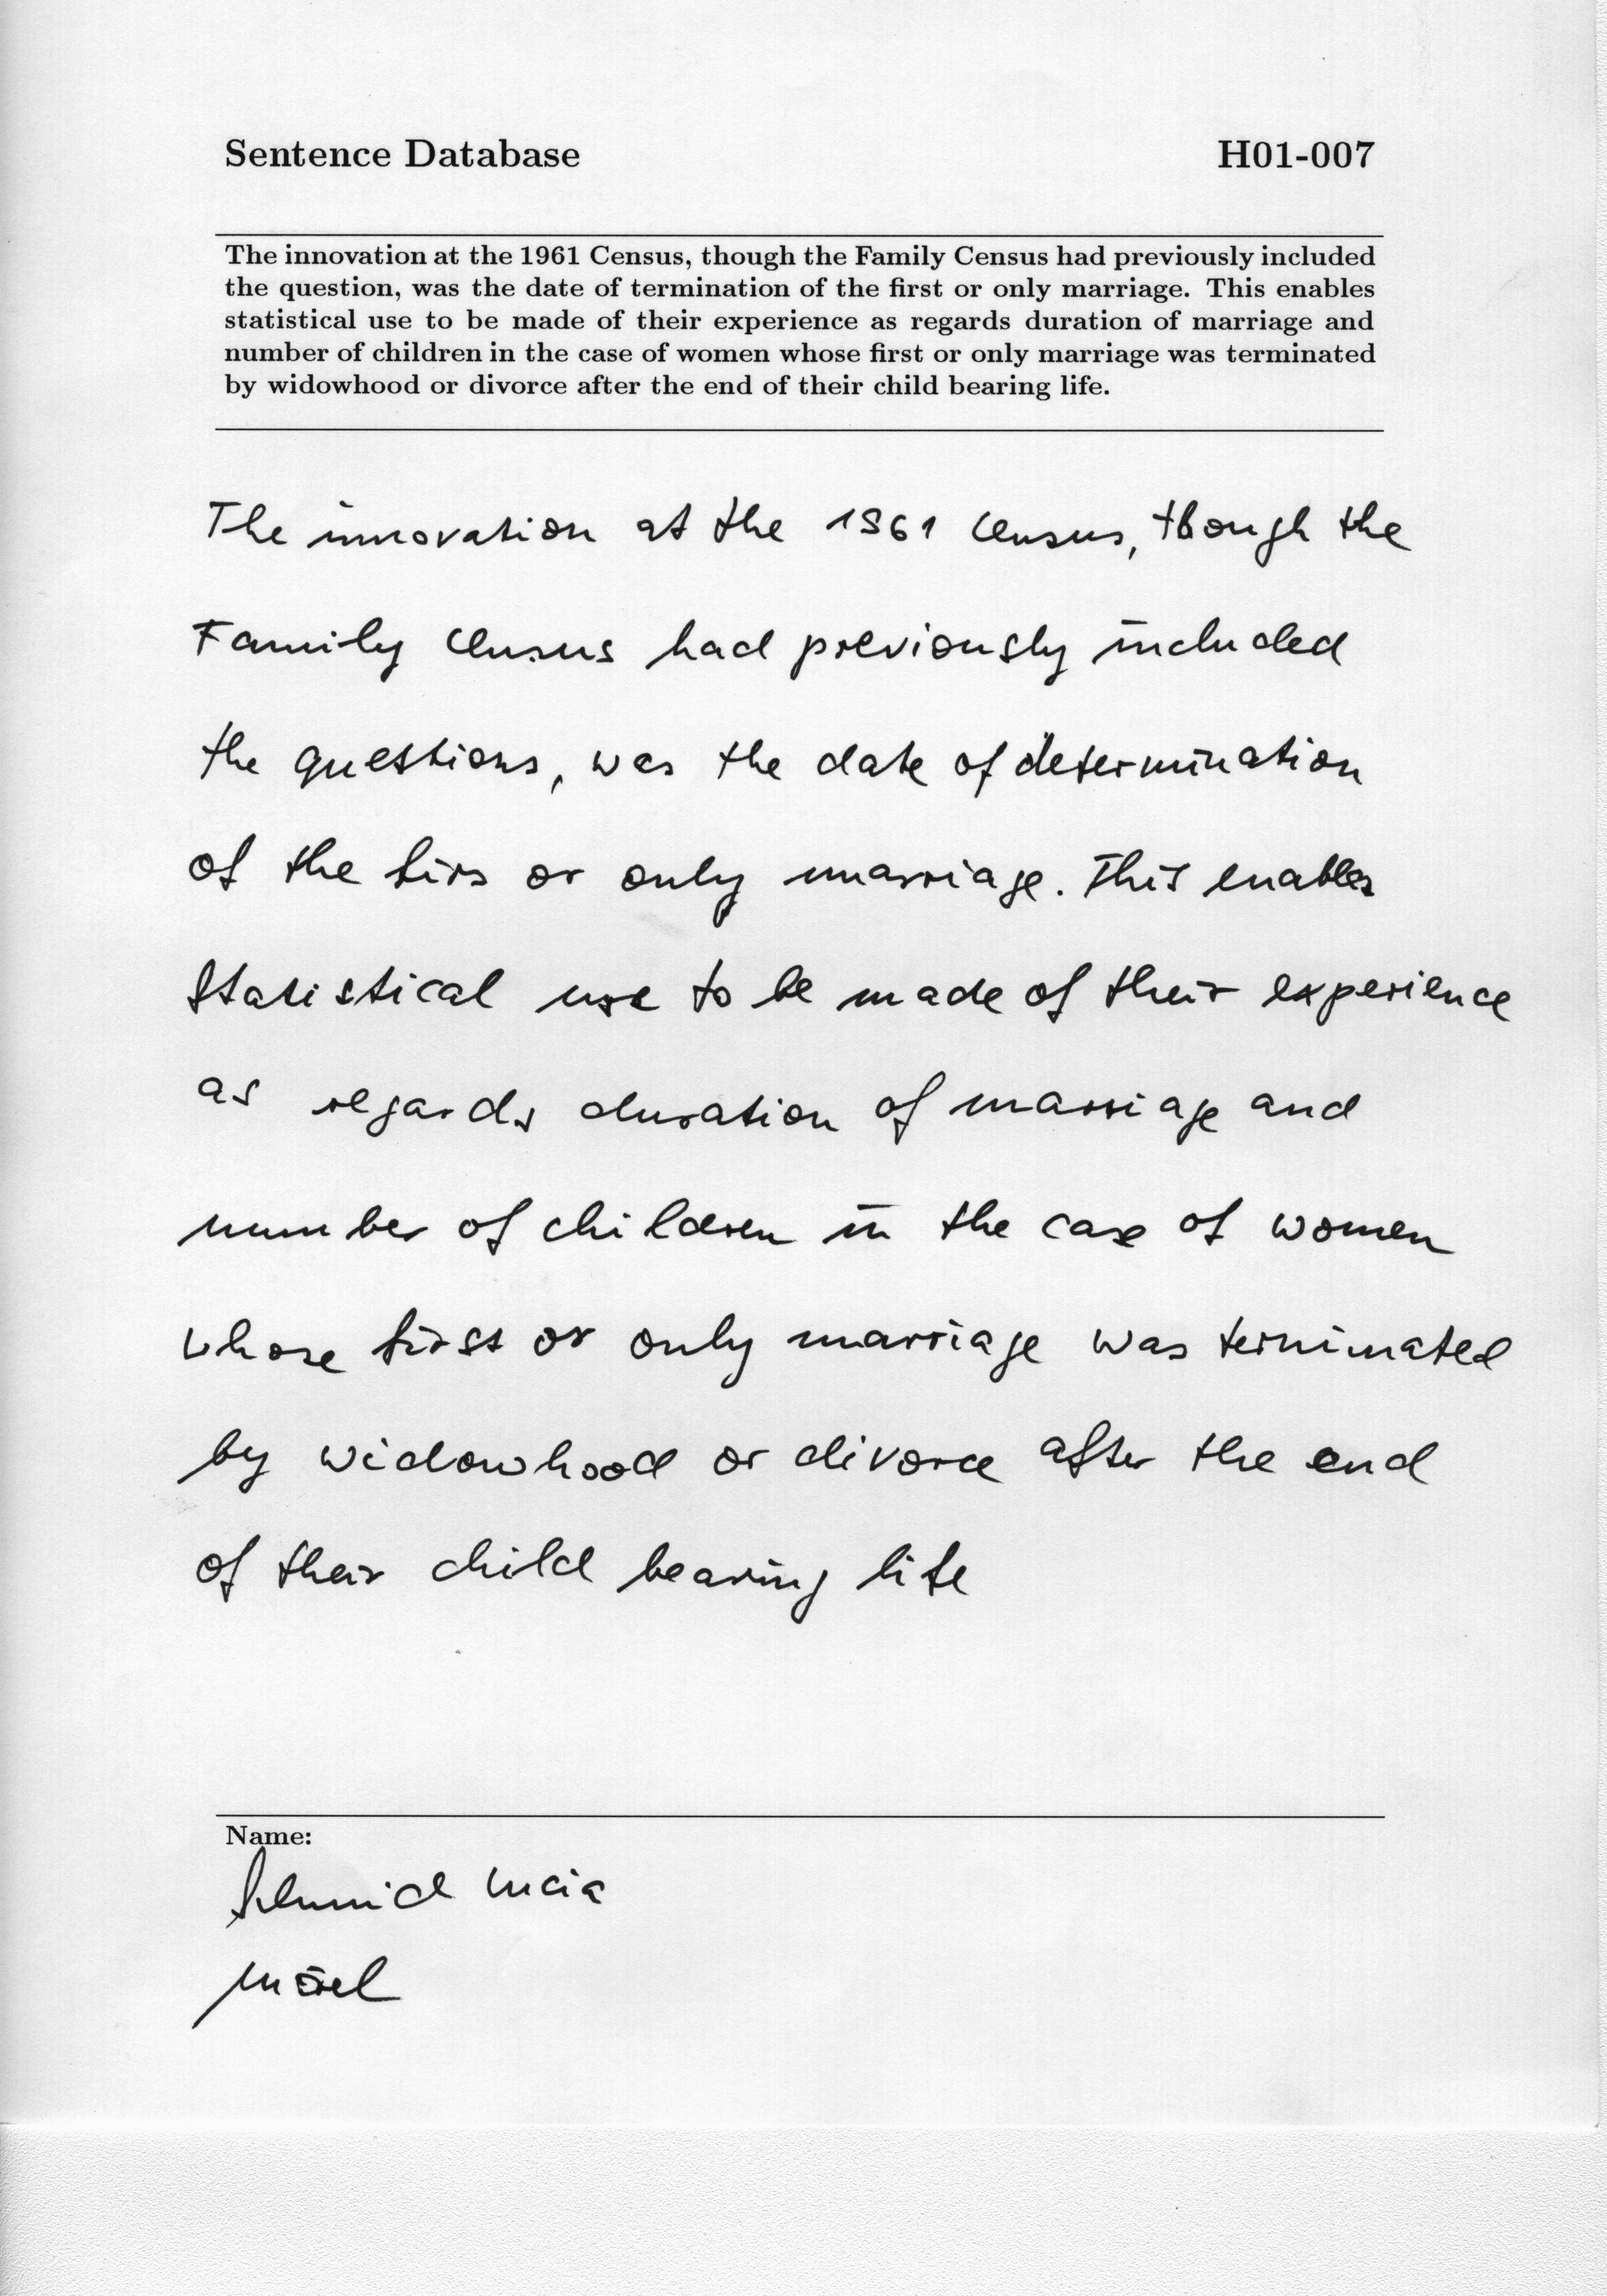 Sentence Database H01-007
The innovation at the 1961 Census, though the Family Census had previously included
the question, was the date of termination of the first or only marriage. This enables
statistical use to be made of their experience as regards duration of marriage and
number of children in the case of women whose first or only marriage was terminated
by widowhood or divorce after the end of their child bearing life.
The innovation at the 1961 Census, though the
Family Census had previously included
the questions, was the date of determination
of the firs or only marriage. This enables
statistical use to be made of their experience
as regards duration of marriage and
number of children in the case of women
whose first or only marriage was terminated
by widowhood or divorce after the end
of their child bearing life
Name:
Schmid Lucia